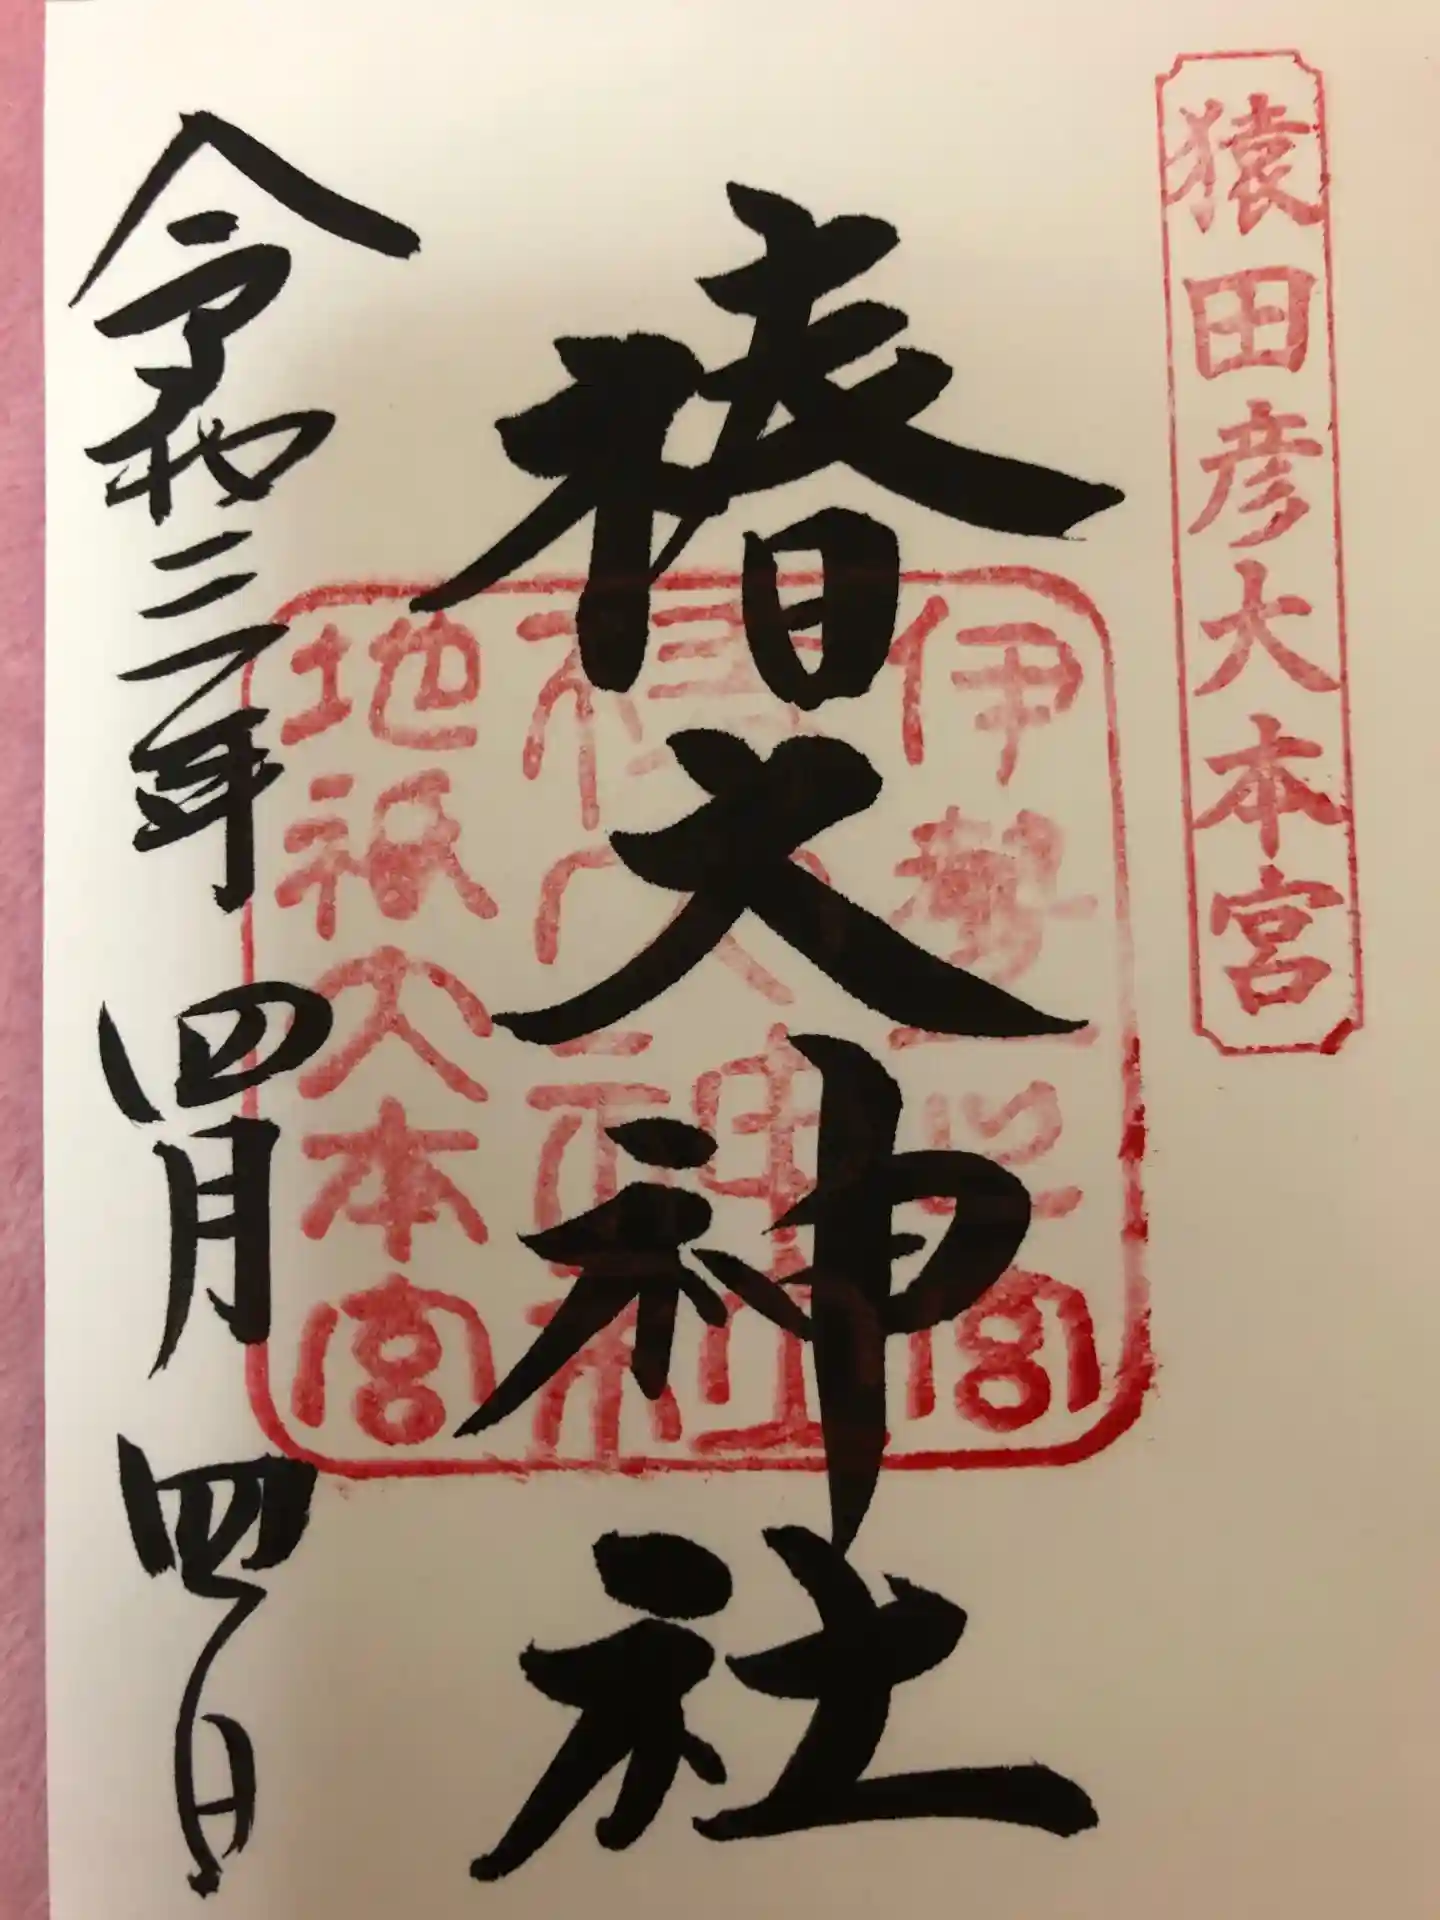 猿田彦大本宮
伊勢一之宮
椿大神社
地祇大本宮
椿大神社
令和三年四月四日